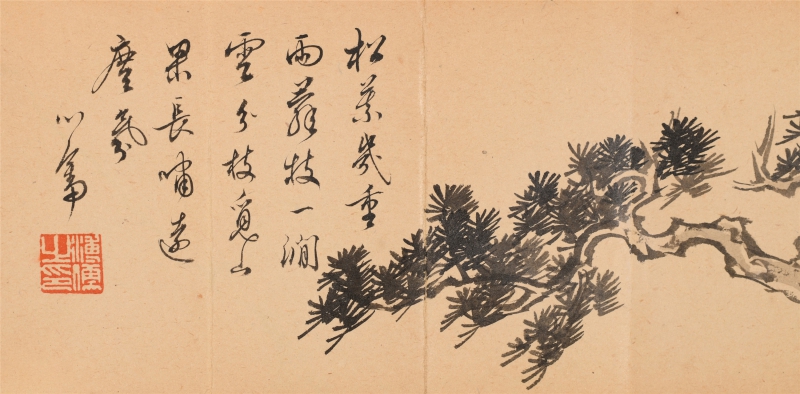 松葉幾重
雨蘚枝一澗
雲分枝覓山
果長嘯遠
塵氛
心畬
溥儒
之印